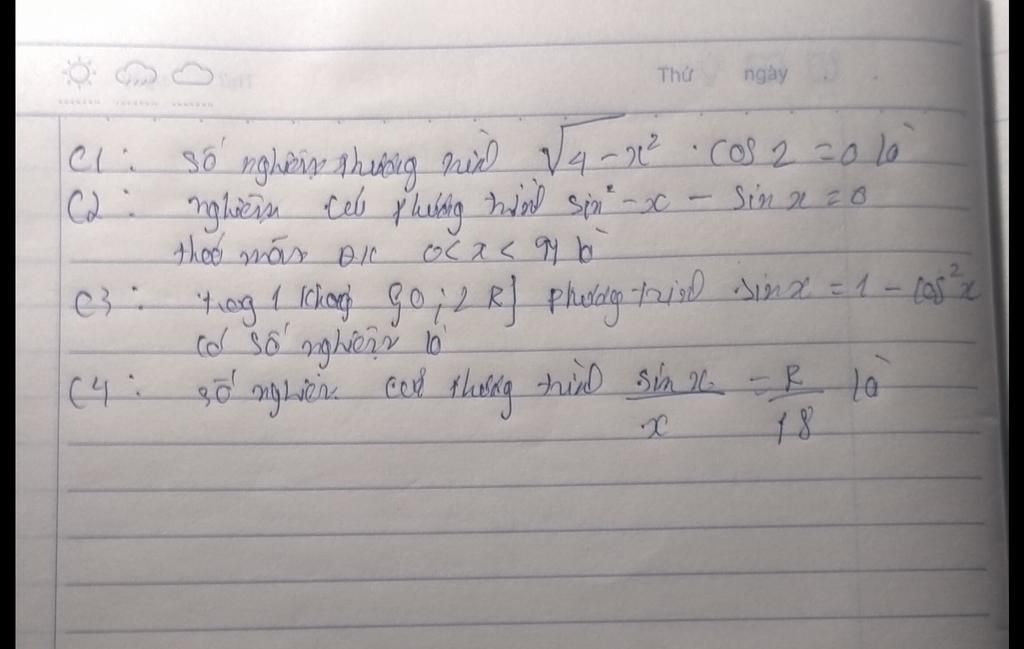 Thứ ngày
C1: Số nghiệm phương trình √4-x² . cos 2 = 0 là
C2: nghiệm của phương trình sin² -x - sin x = 0
thoả mãn ĐK 0 < x < là
C3: trong 1 khoảng phương trình sin x = 1 - cos² x
có số nghiệm là
C4: số nghiệm của phương trình sin x / x = / 18 là